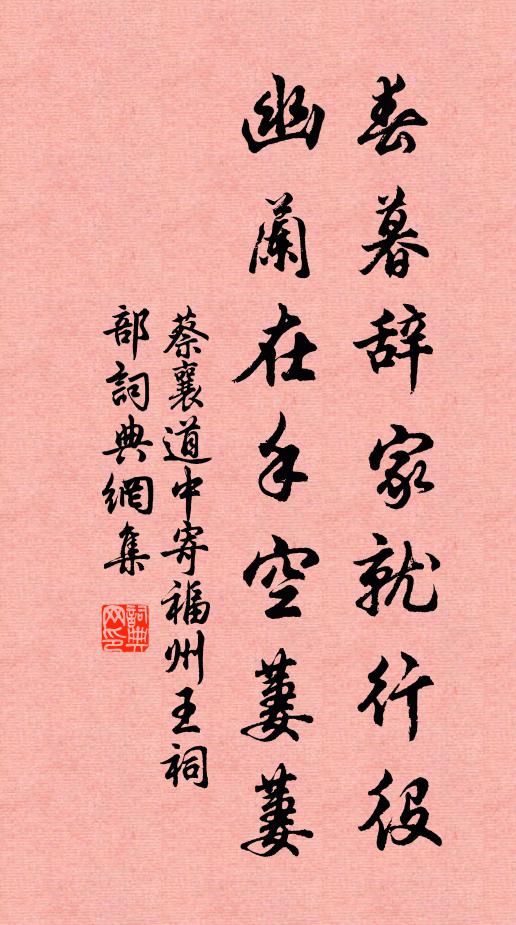 春暮辞家就行役
幽蘭在手空萋萋
蔡襄道中寄福州王祠
部詞典網集
詞典
网印